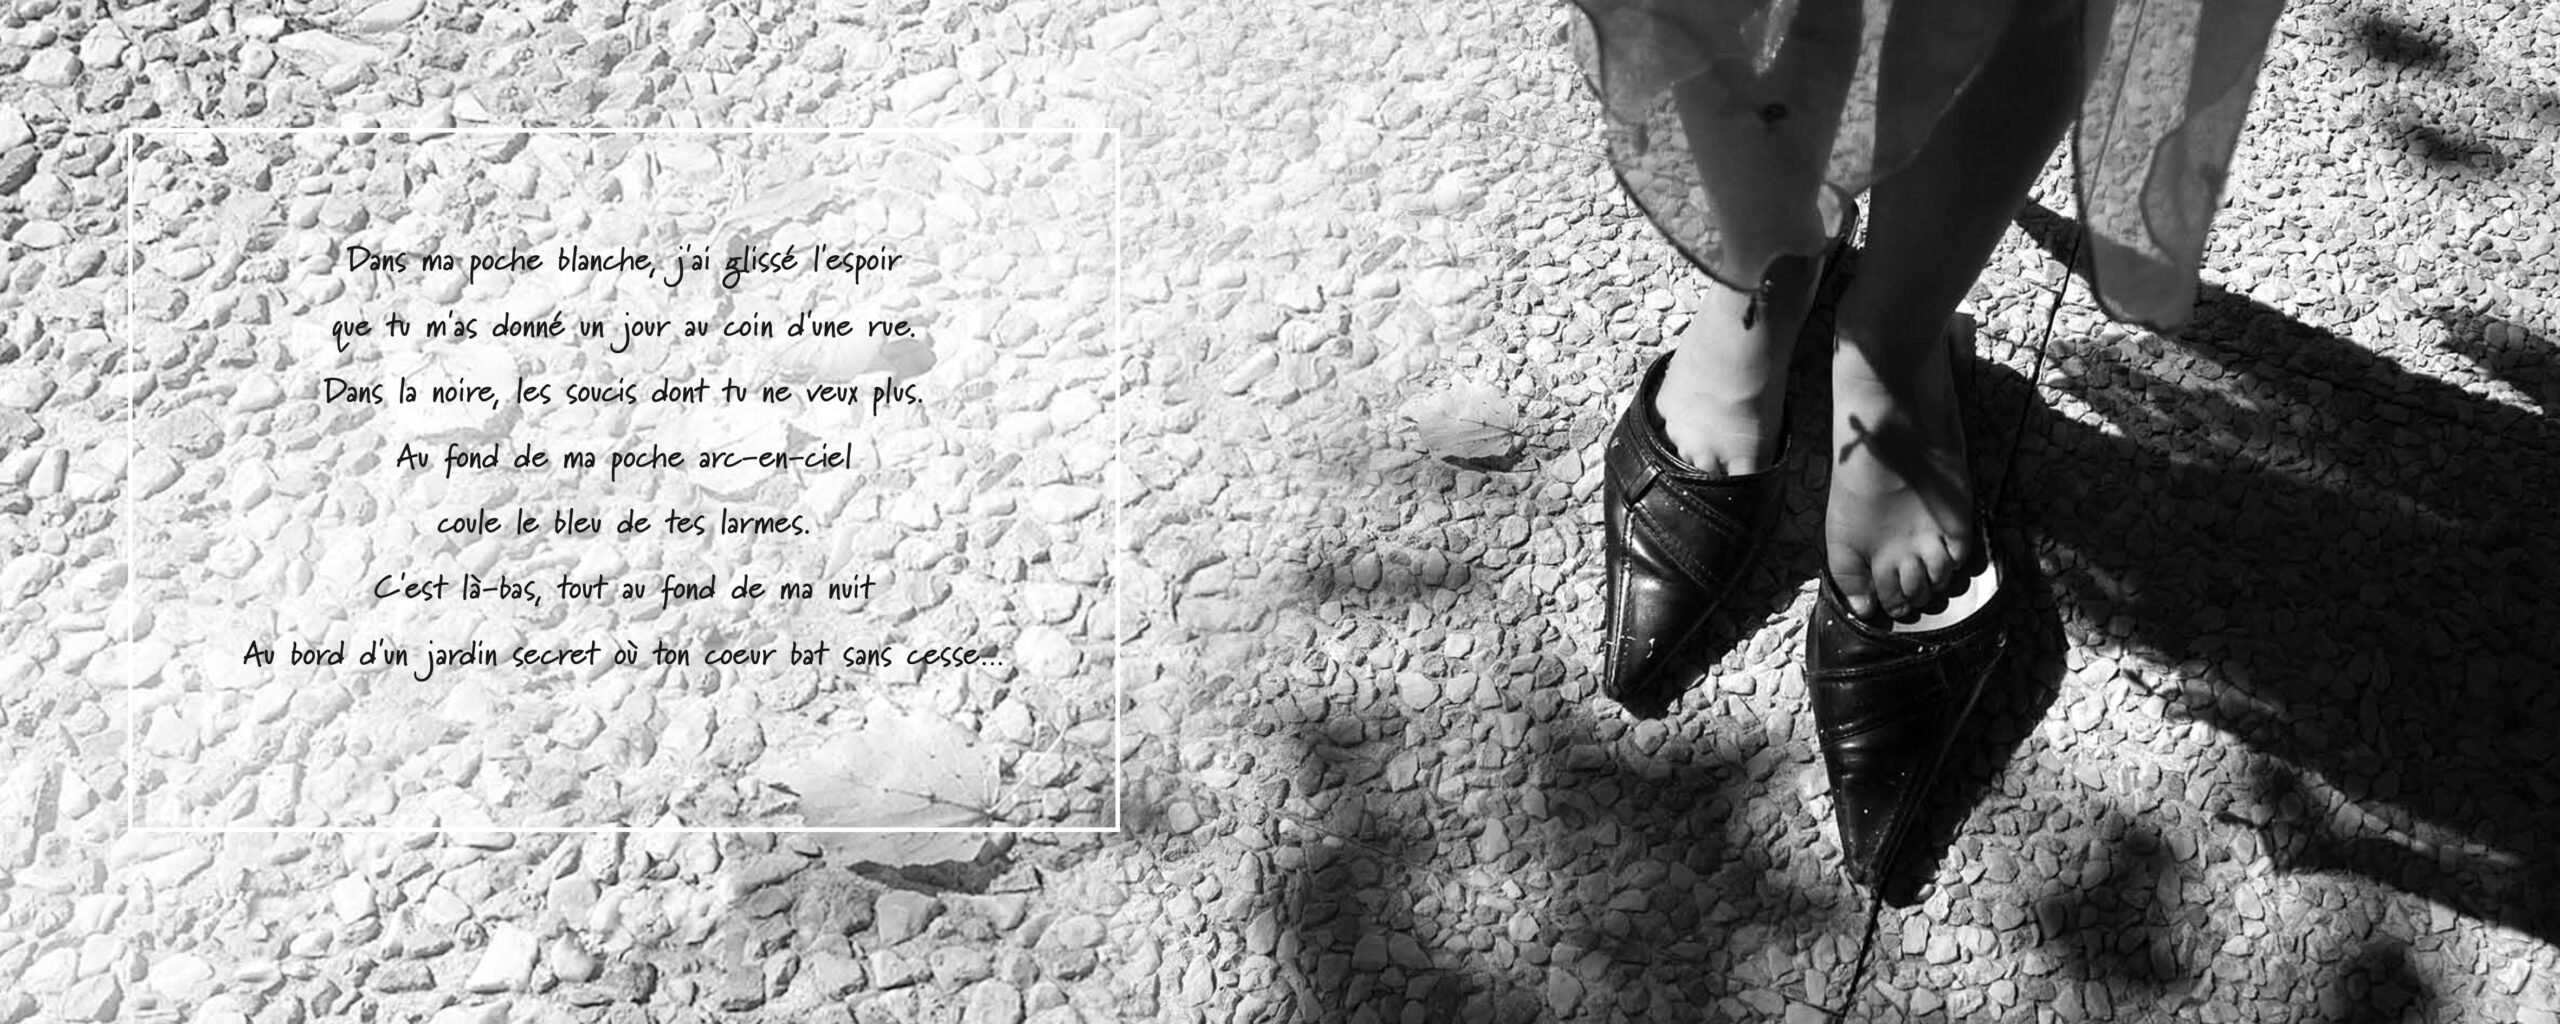 Dans ma poche blanche, j'ai glissé l'espoir
que tu m'as donné un jour au coin d'une rue.
Dans la noire, les soucis dont tu ne veux plus.
Au fond de ma poche arc-en-ciel
coule le bleu de tes larmes.
C'est là-bas, tout au fond de ma nuit
Au bord d'un jardin secret où ton coeur bat sans cesse...